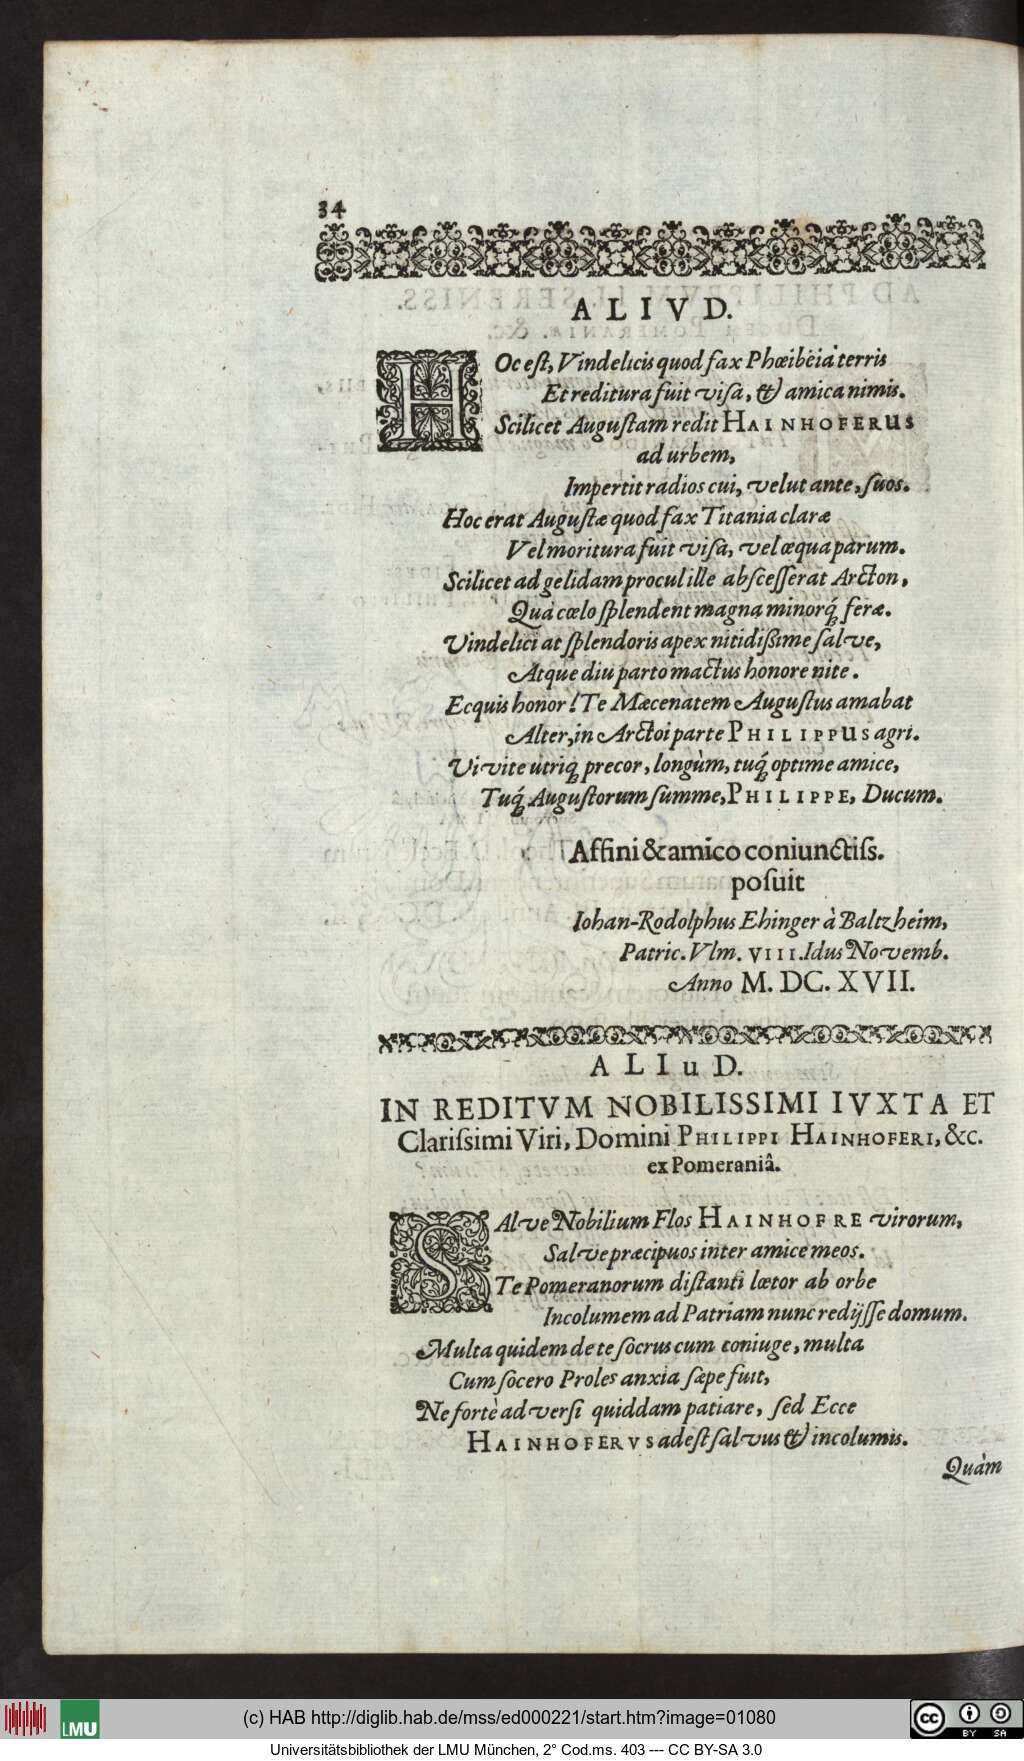 34
ALIVD.
HOc eſt, Vindelicis quod fax Phœibëia terris
Et reditura fuit viſa, & amica nimis.
Scilicet Auguſtam redit HAINHOFERUS
ad urbem,
Impertit radios cui, velut ante, ſuos.
Hoc erat Auguſtæ quod fax Titania claræ
Vel moritura fuit viſa, vel œqua parum.
Scilicet ad gelidam procul ille abſceſſerat Arcton,
Quà cœlo ſplendent magna minorq́; feræ.
Vindelici at ſplendoris apex nitidißime ſalve,
Atque diu parto mactus honore nite.
Ecquis honor! Te Mæcenatem Auguſtus amabat
Alter, in Arctoi parte PHILIPPUS agri.
Vivite utriq; precor, longùm, tuq́; optime amice,
Tuq́; Auguſtorum ſumme, PHILIPPE, Ducum.
Affini & amico coniunctiſs.
poſuit
Iohan-Rodolphus Ehinger à Baltzheim,
Patric. Vlm. VIII. Idus Novemb.
Anno M. DC. XVII.
ALIuD.
IN REDITVM NOBILISSIMI IVXTA ET
Clariſsimi Viri, Domini PHILIPPI HAINHOFERI, &c.
ex Pomeraniâ.
SAlve Nobilium Flos HAINHOFRE virorum,
Salve præcipuos inter amice meos.
Te Pomeranorum diſtanti lœtor ab orbe
Incolumem ad Patriam nunc redijſſe domum.
Multa quidem de te ſocrus cum coniuge, multa
Cum ſocero Proles anxia ſæpe fuit,
Ne fortè adverſi quiddam patiare, ſed Ecce
HAINHOFERVS adeſt ſalvus & incolumis.
Quàm
LMU
(c) HAB http://diglib.hab.de/mss/ed000221/start.htm?image=01080
cc BY SA
Universitätsbibliothek der LMU München, 2° Cod.ms. 403 --- CC BY-SA 3.0